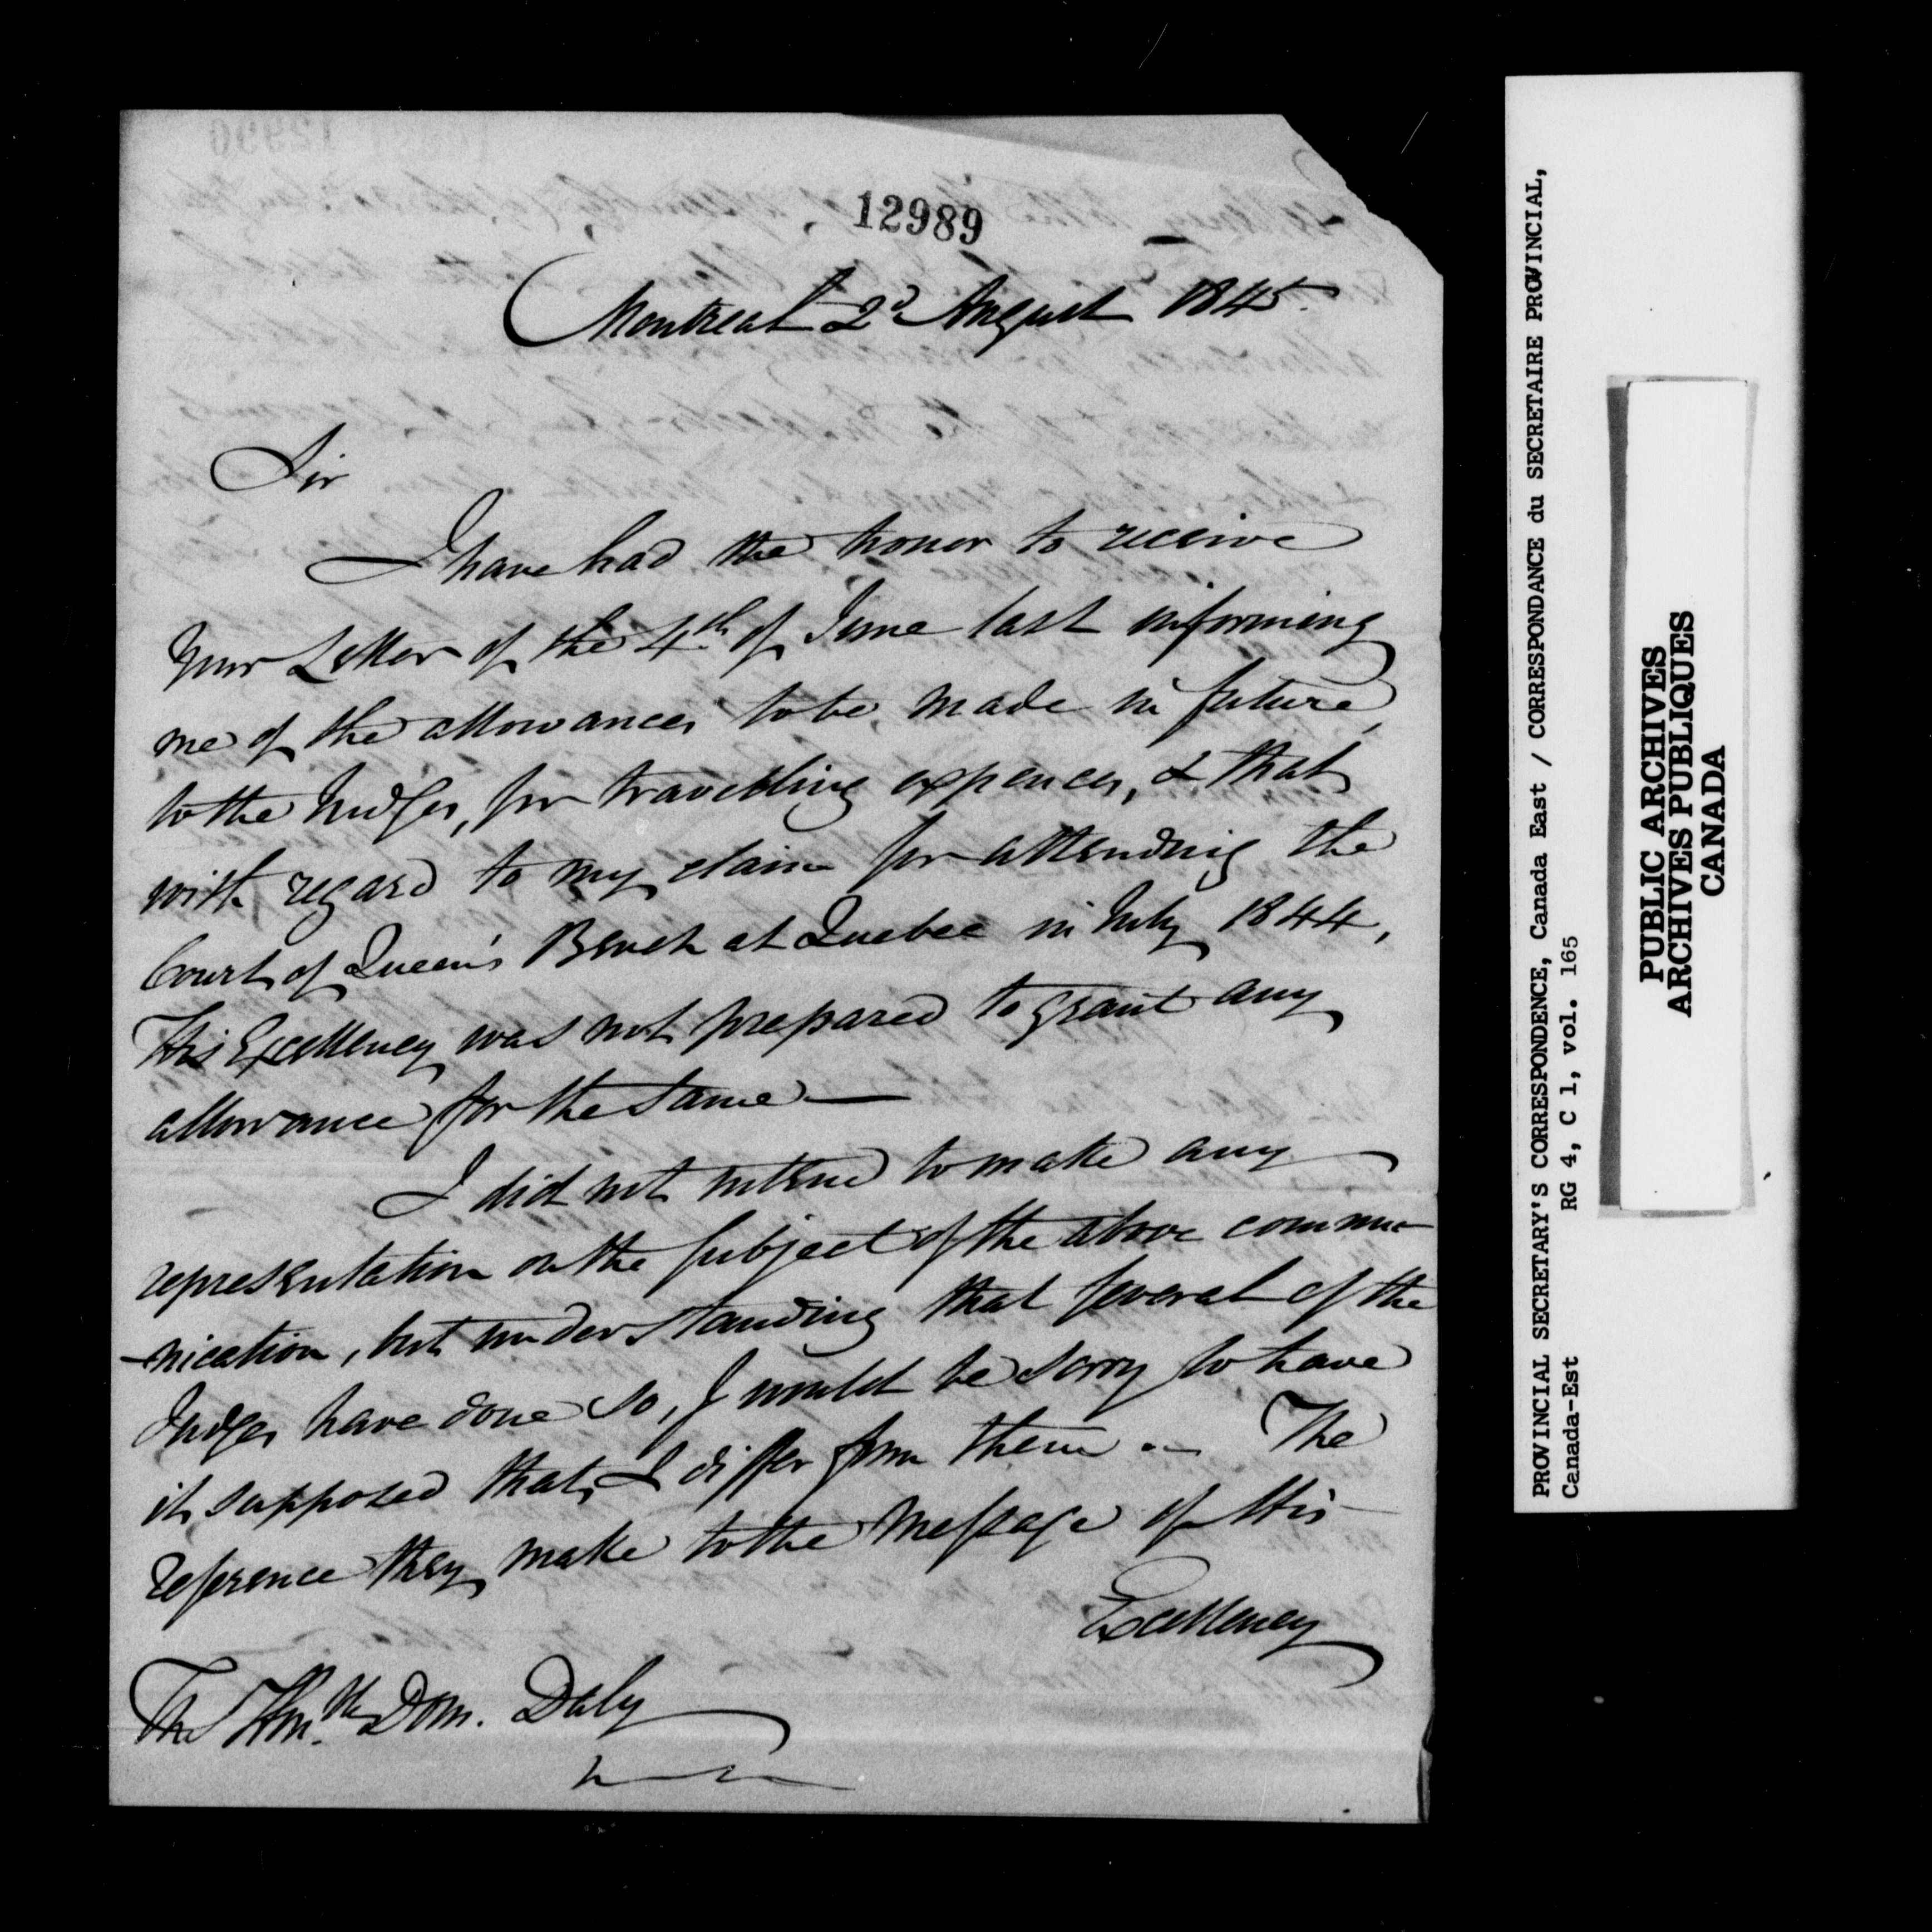 12989
Montreal 2d August 1845.
Sir
I have had the honor to receive
your Letter of the 4th of June last informing
me of the allowances to be made in future,
to the Judges, for travelling expences, & that
with regard to my claim for attending the
Court of Queen's Bench at Quebec in July 1844,
His Excellency was not prepared to grant any
allowance for the same —
I did not intend to make any
representation on the subject of the above commu-
-nication, but understanding that several of the
Judges have done so, I would be sorry to have
it supposed that I differ from them .— The
reference they make to the Message of His
Excellency
The Hon.ble Dom. Daly
PROVINCIAL SECRETARY'S CORRESPONDENCE, Canada East / CORRESPONDANCE du SECRETAIRE PROVINCIAL,
Canada-Est RG 4, C 1, vol. 165
PUBLIC ARCHIVES
ARCHIVES PUBLIQUES
CANADA